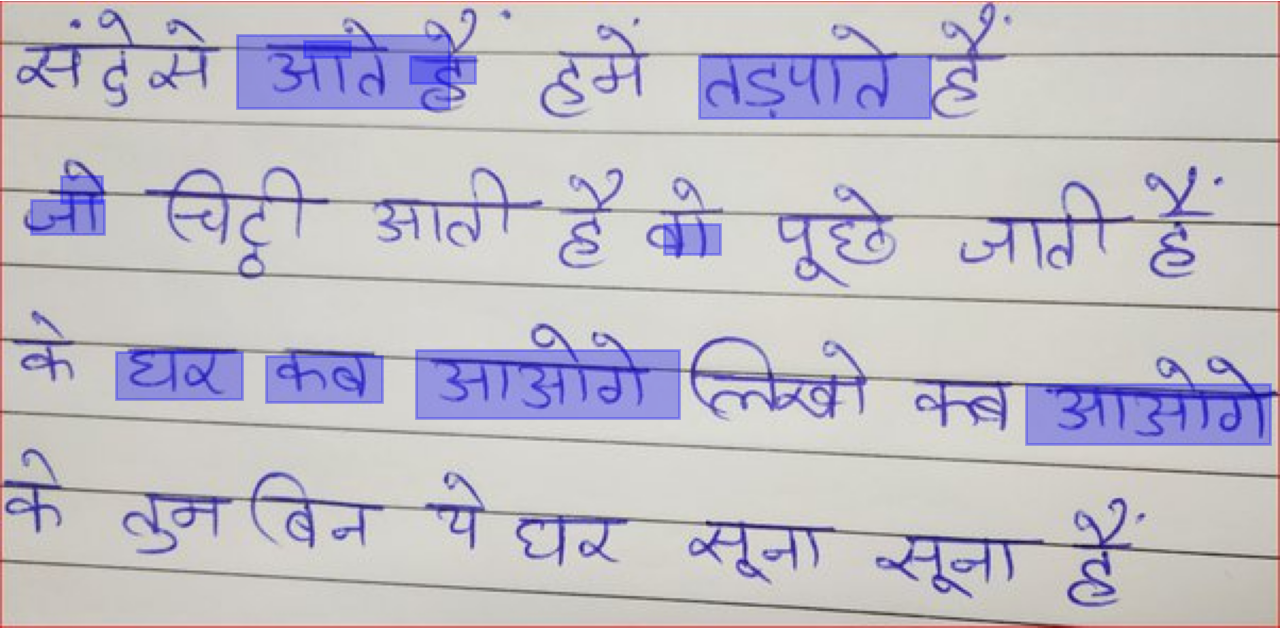 संदेसे आते हैं हमें तड़पाते हैं
जो चिट्ठी आती है वो पूछे जाती हैं
के घर कब आओगे लिखो कब आओगे
के तुम बिन ये घर सूना सूना हैं